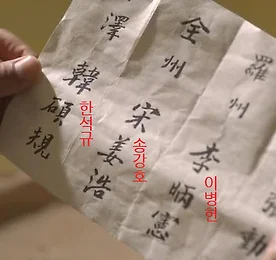 羅州李炳憲
이병헌
全州宋姜浩
송강호
澤韓碩規
한석규